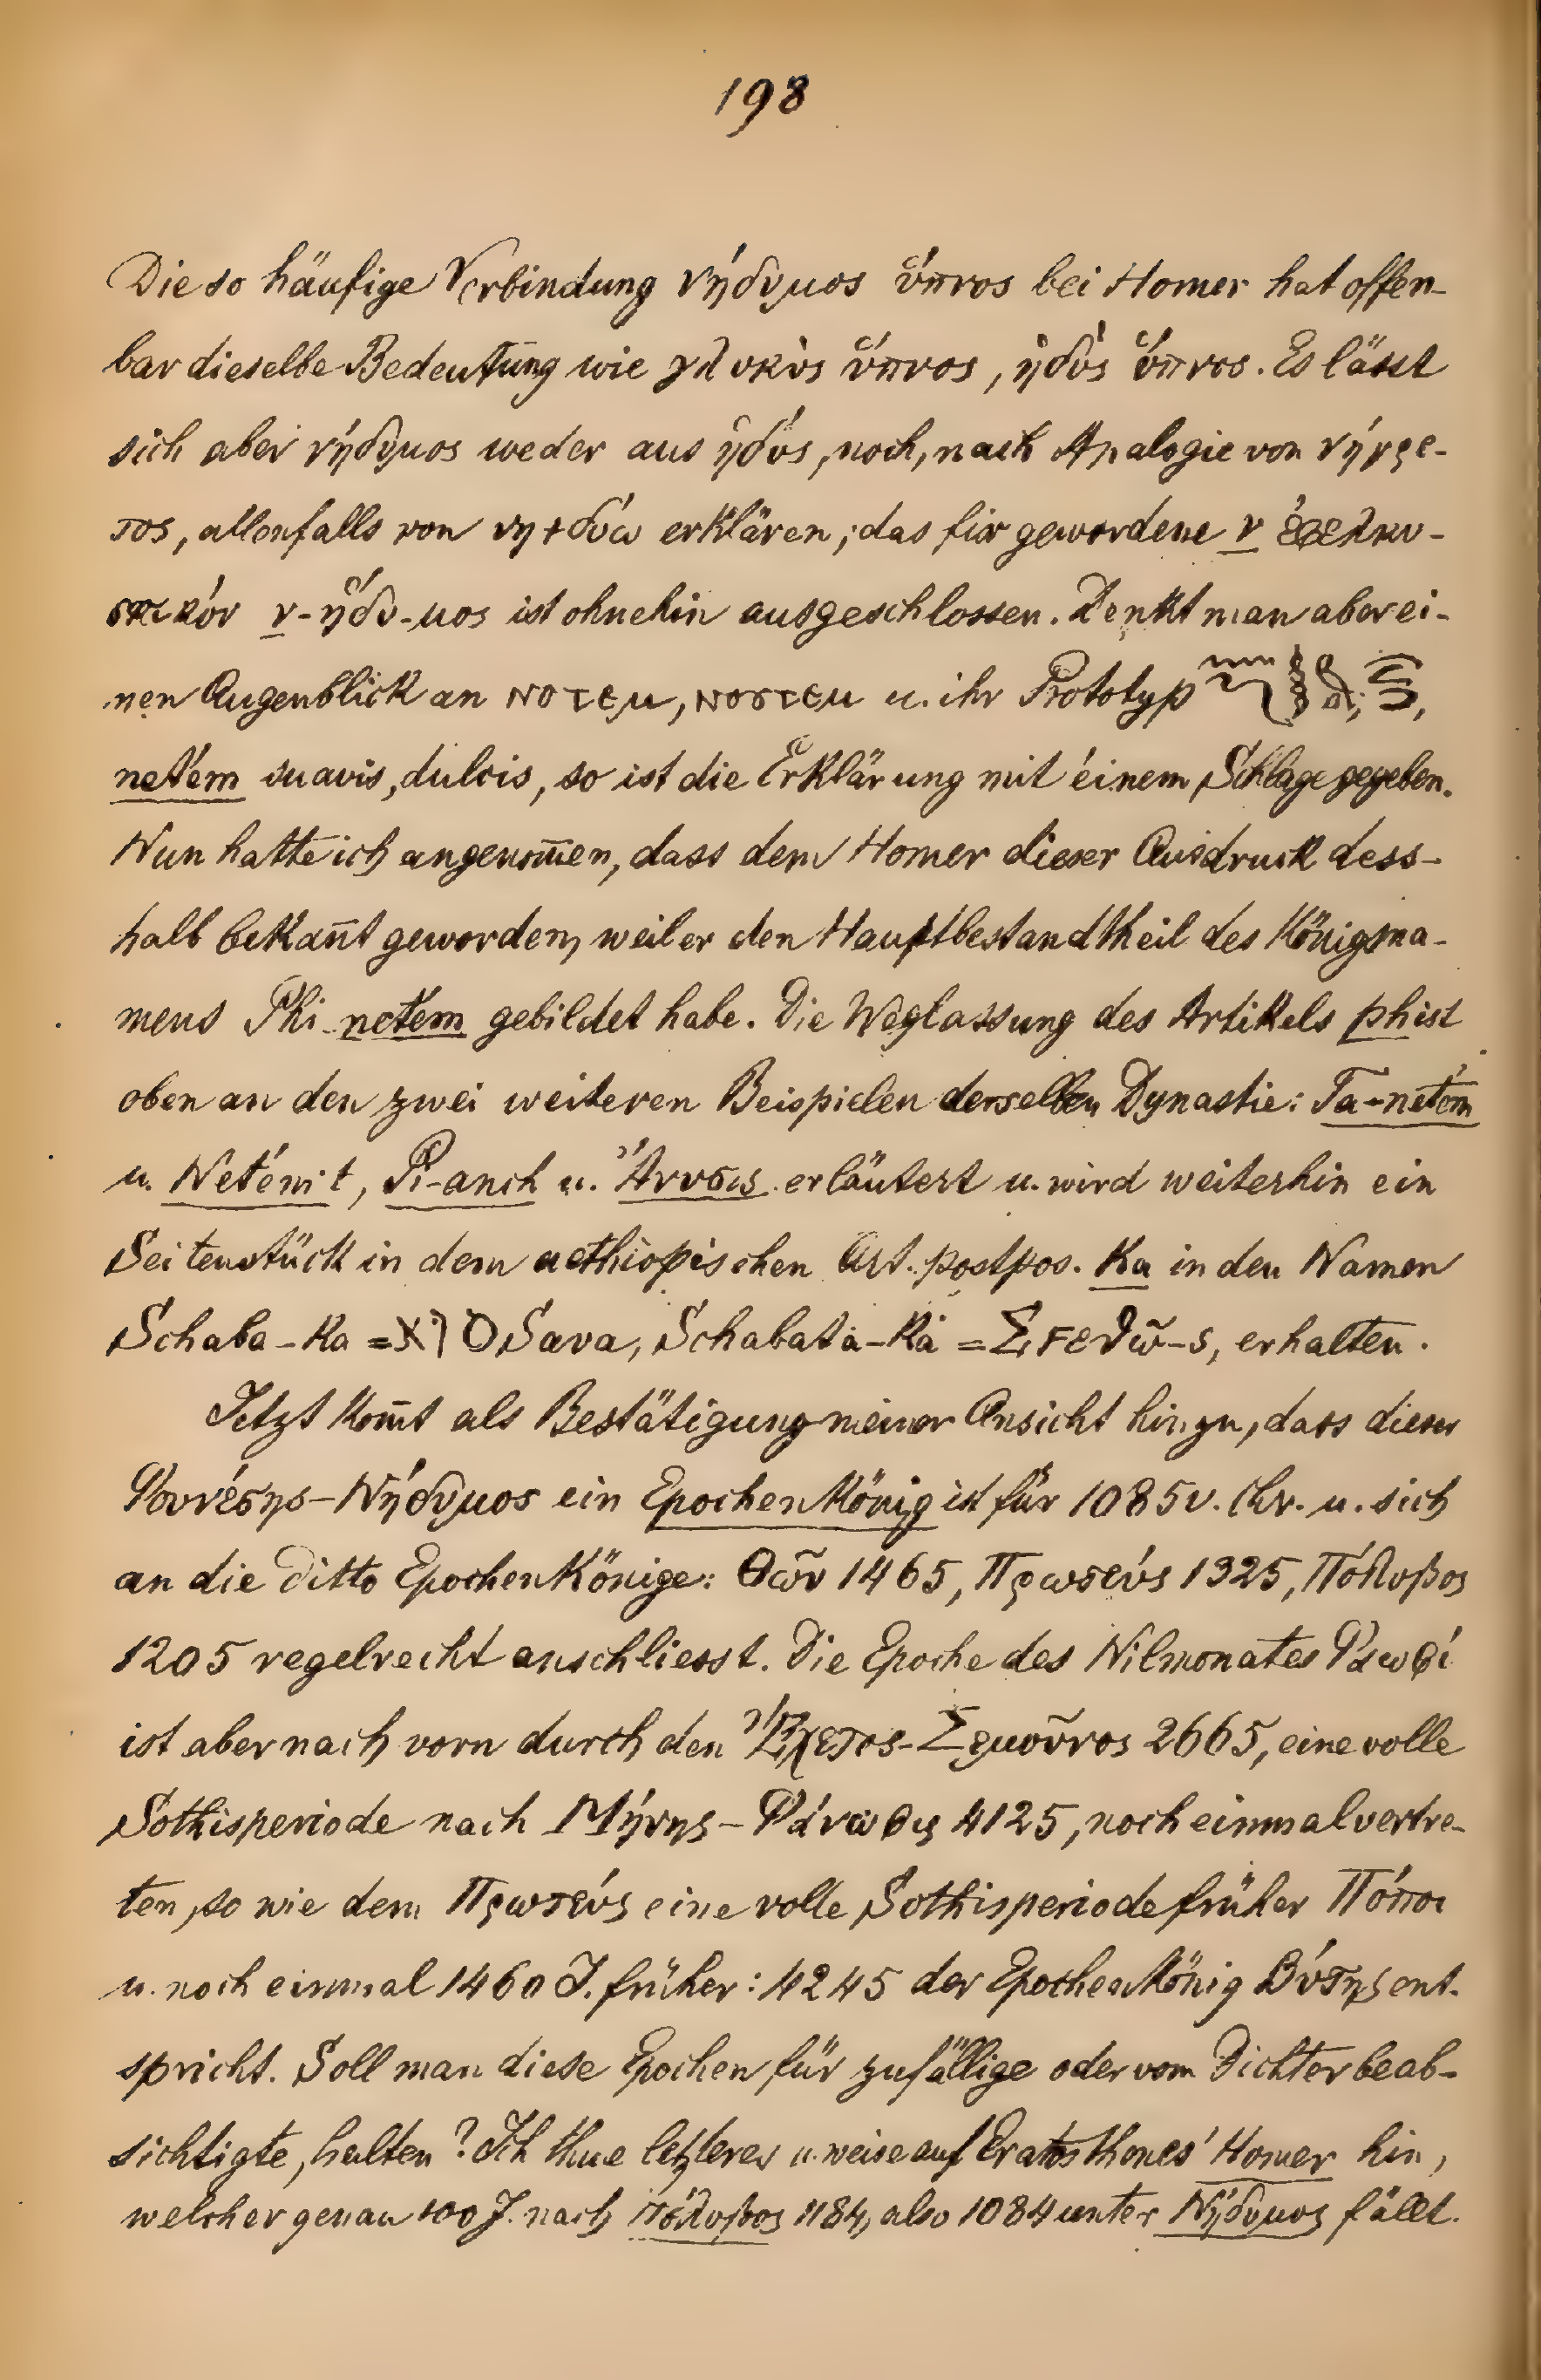 198
Die so häufige Verbindung νήδυμος ὕπνος bei Homer hat offen-
bar dieselbe Bedeutung wie γλυκὺς ὕπνος, ἡδὺς ὕπνος. Es lässt
sich aber νήδυμος weder aus ἡδύς, noch, nach Analogie von νήγρε-
τος, allenfalls von νη+δύω erklären; das fix gewordene ν ἐφελκυ-
στικόν ν-ἥδυ-μος ist ohnehin ausgeschlossen. Denkt man aber ei-
nen Augenblick an ⲛⲟⲧⲉⲙ, ⲛⲟⲩⲧⲉⲙ u. ihr Prototyp
netém suavis, dulcis, so ist die Erklärung mit éinem Schlage gegeben.
Nun hatte ich angenom̄en, dass dem Homer dieser Ausdruck dess-
halb bekan̄t geworden, weil er den Hauptbestandtheil des Königsna-
mens Phi-netém gebildet habe. Die Weglassung des Artikels ph ist
oben an den zwei weiteren Beispielen derselben Dynastie: Ta-netém
u. Netémit, Pi-anch u. erläutert u. wird weiterhin ein
Seitenstück in dem aethiopischen Art. postpos. Ka in den Namen
Schaba-Ka = Sava, Schabatá-Ká = Σεεθῶ-ς, erhalten.
Jetzt kom̄t als Bestätigung meiner Ansicht hinzu, dass dieser
Φουνέσης-Νήδυμος ein Epochenkönig ist für 1085 v. Chr. u. sich
an die ditto Epochenkönige: Θῶν 1465, Πρωτεύς 1325, Πόλυβος
1205 regelrecht anschliesst. Die Epoche des Nilmonates Φαωφί
ist aber nach vorn durch den Ἔχετος-Σεμοῦνος 2665, eine volle
Sothisperiode nach Μήνης-Φάνωφις 4125, noch einmal vertre-
ten, so wie dem Πρωτεύς eine volle Sothisperiode früher
u. noch einmal 1460 J. früher: 4245 der Epochenkönig Βύτης ent-
spricht. Soll man diese Epochen für zufällige oder vom Dichter beab-
sichtigte, halten? Ich thue letzteres u. weise auf Eratosthenes' Homer hin,
welcher genau 100 J. nach Πόλυβος 1184, also 1084 unter Νήδυμος fällt.